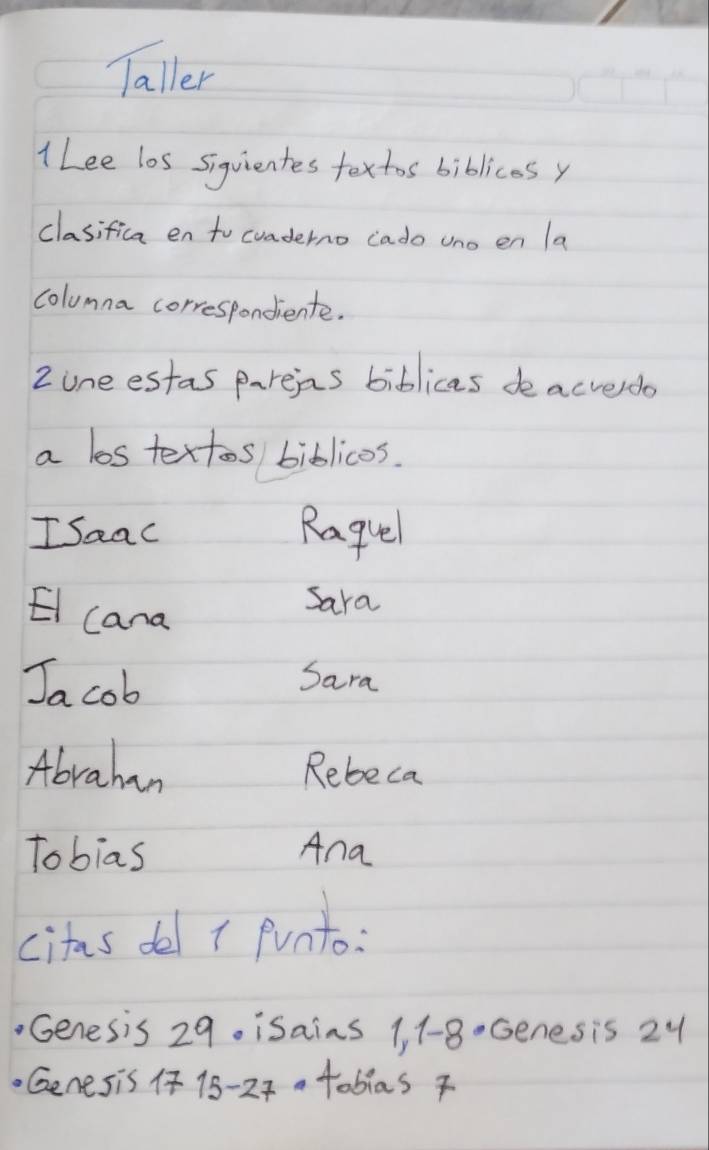 Taller
1 Lee los siguientes textos biblicos y
clasifica en tu cuaderno cado uno en la
columna correspondiente.
2 une estas parejas biblicas de acuerdo
a los textos biblicos.
Isaac Raquel
El cana Sara
Jacob Sara
Abrahan Rebeca
Tobias Ana
citas del 1 punto:
•Genesis 29 •isaias 1,1-8 •Genesis 24
•Genesis 17 15-27 •tobias 7